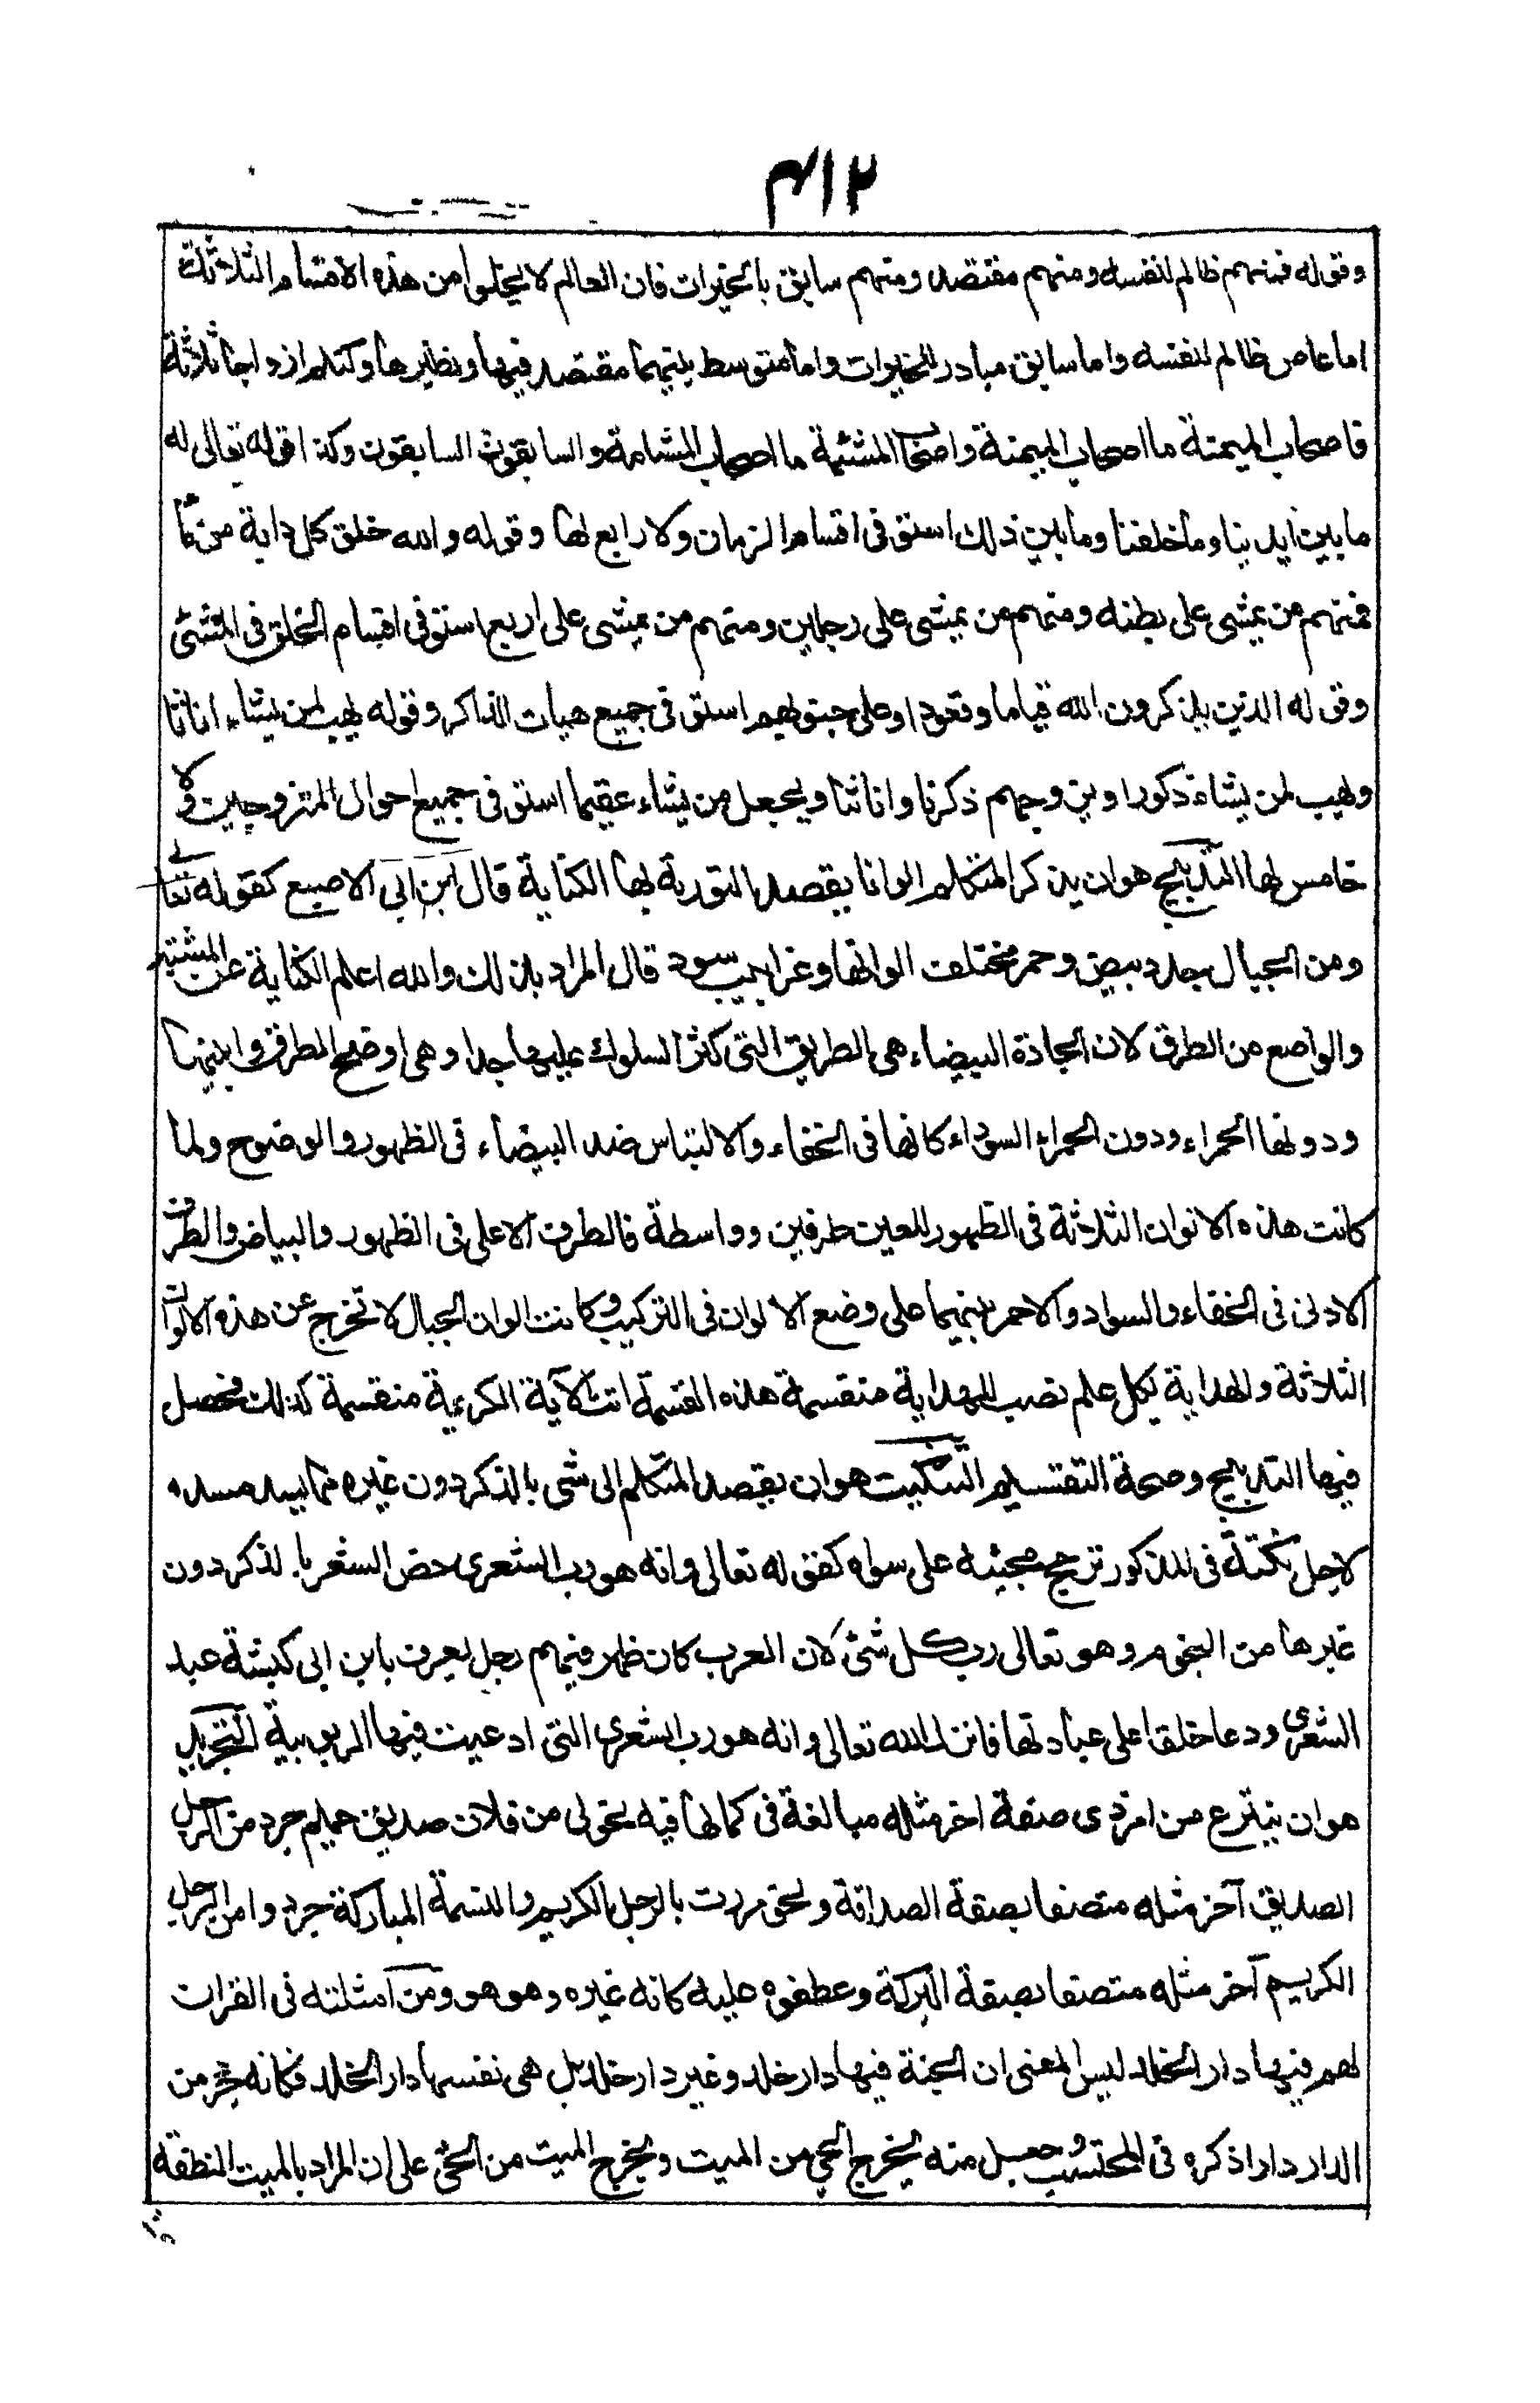 ٤١٢
وقوله فمنهم ظالم لنفسه ومنهم مقتصد ومنهم سابق بالخيرات فان العالم لا يخلوا من هذه الاقسام الثلاثة
اما عاص ظالم لنفسه واما سابق مبادر للخيرات واما متوسط بينهما مقتصد فيها ونظيرها وكنتم ازواجا ثلاثة
فاصحاب الميمنة ما اصحاب الميمنة واصحاب المشئمة ما اصحاب المشامة والسابقون السابقون وكذا قوله تعالى له
ما بين ايدينا وما خلفنا وما بين ذلك استوفى اقسام الزمان ولا رابع لها وقوله والله خلق كل دابة من ماء
فمنهم من يمشى على بطنه ومنهم من يمشى على رجلين ومنهم من يمشى على اربع استوفى اقسام الخلق فى المشى
وقوله الذين يذكرون الله قياما وقعودا وعلى جنوبهم استوفى جميع هيات الذاكر وقوله يهب لمن يشاء اناثا
ويهب لمن يشاء ذكورا او يزوجهم ذكرنا واناثا ويجعل من يشاء عقيما استوفى جميع احوال المتزوجين ولا
خامس لها التدبيج هو ان يذكر المتكلم الوانا يقصد التورية بها الكناية قال ابن ابى الاصبع كقوله تعالى
ومن الجبال جدد بيض وحمر مختلف الوانها وغرابيب سود قال المراد بذلك والله اعلم الكناية عن المشتبه
والواضع من الطرق لان الجادة البيضاء هى الطريق التى كثر السلوك عليها جدا وهى اوضح الطرق وابينها
ودونها الحمراء ودون الحمراء السوداء كانها فى الخفاء والالتباس ضد البيضاء فى الظهور والوضوح ولما
كانت هذه الالوان الثلاثة فى الظهور للعين طرفين وواسطة فالطرف الاعلى فى الظهور والبياض والطرف
الادنى فى الخفاء والسواد والاحمر بينهما على وضع الالوان فى التركيب وكانت الوان الجبال لا تخرج عن هذه الالوان
الثلاثة والهداية بكل علم نصب للهداية منقسمة هذه القسمة اتت الآية الكريمة منقسمة كذلك فحصل
فيها التدبيج وصحة التقسيم التنكيت هو ان يقصد المتكلم الى شى بالذكر دون غيره مما يسد مسده
لاجل نكتة فى المذكور ترجح مجيئه على سواه كقوله تعالى وانه هو رب الشعرى خص الشعر بالذكر دون
غيرها من النجوم وهو تعالى رب كل شئ لان العرب كان ظهر فيهم رجل يعرف بابن ابى كبشة عبد
الشعرى ودعا خلقا على عبادتها فانزل الله تعالى وانه هو رب الشعرى التى ادعيت فيها الربوبية التجريد
هو ان ينتزع من امر ذى صفة اخر مثله مبالغة فى كمالها فيه نحو لى من فلان صديق حميم جرد من الرجل
الصديق آخر مثله متصفا بصفة الصداقة ونحو مررت بالرجل الكريم والنسمة المباركة جردوا من الرجل
الكريم آخر مثله متصفا بصفة البركة وعطفوه عليه كانه غيره وهو هو ومن امثلته فى القران
لهم فيها دار الخلد ليس المعنى ان الجنة فيها دار خلد وغير دار خلد بل هى نفسها دار الخلد فكانه جرد من
الدار دارا ذكره فى المحتسب وجعل منه يخرج الحى من الميت ويخرج الميت من الحى على ان المراد بالميت النطفة